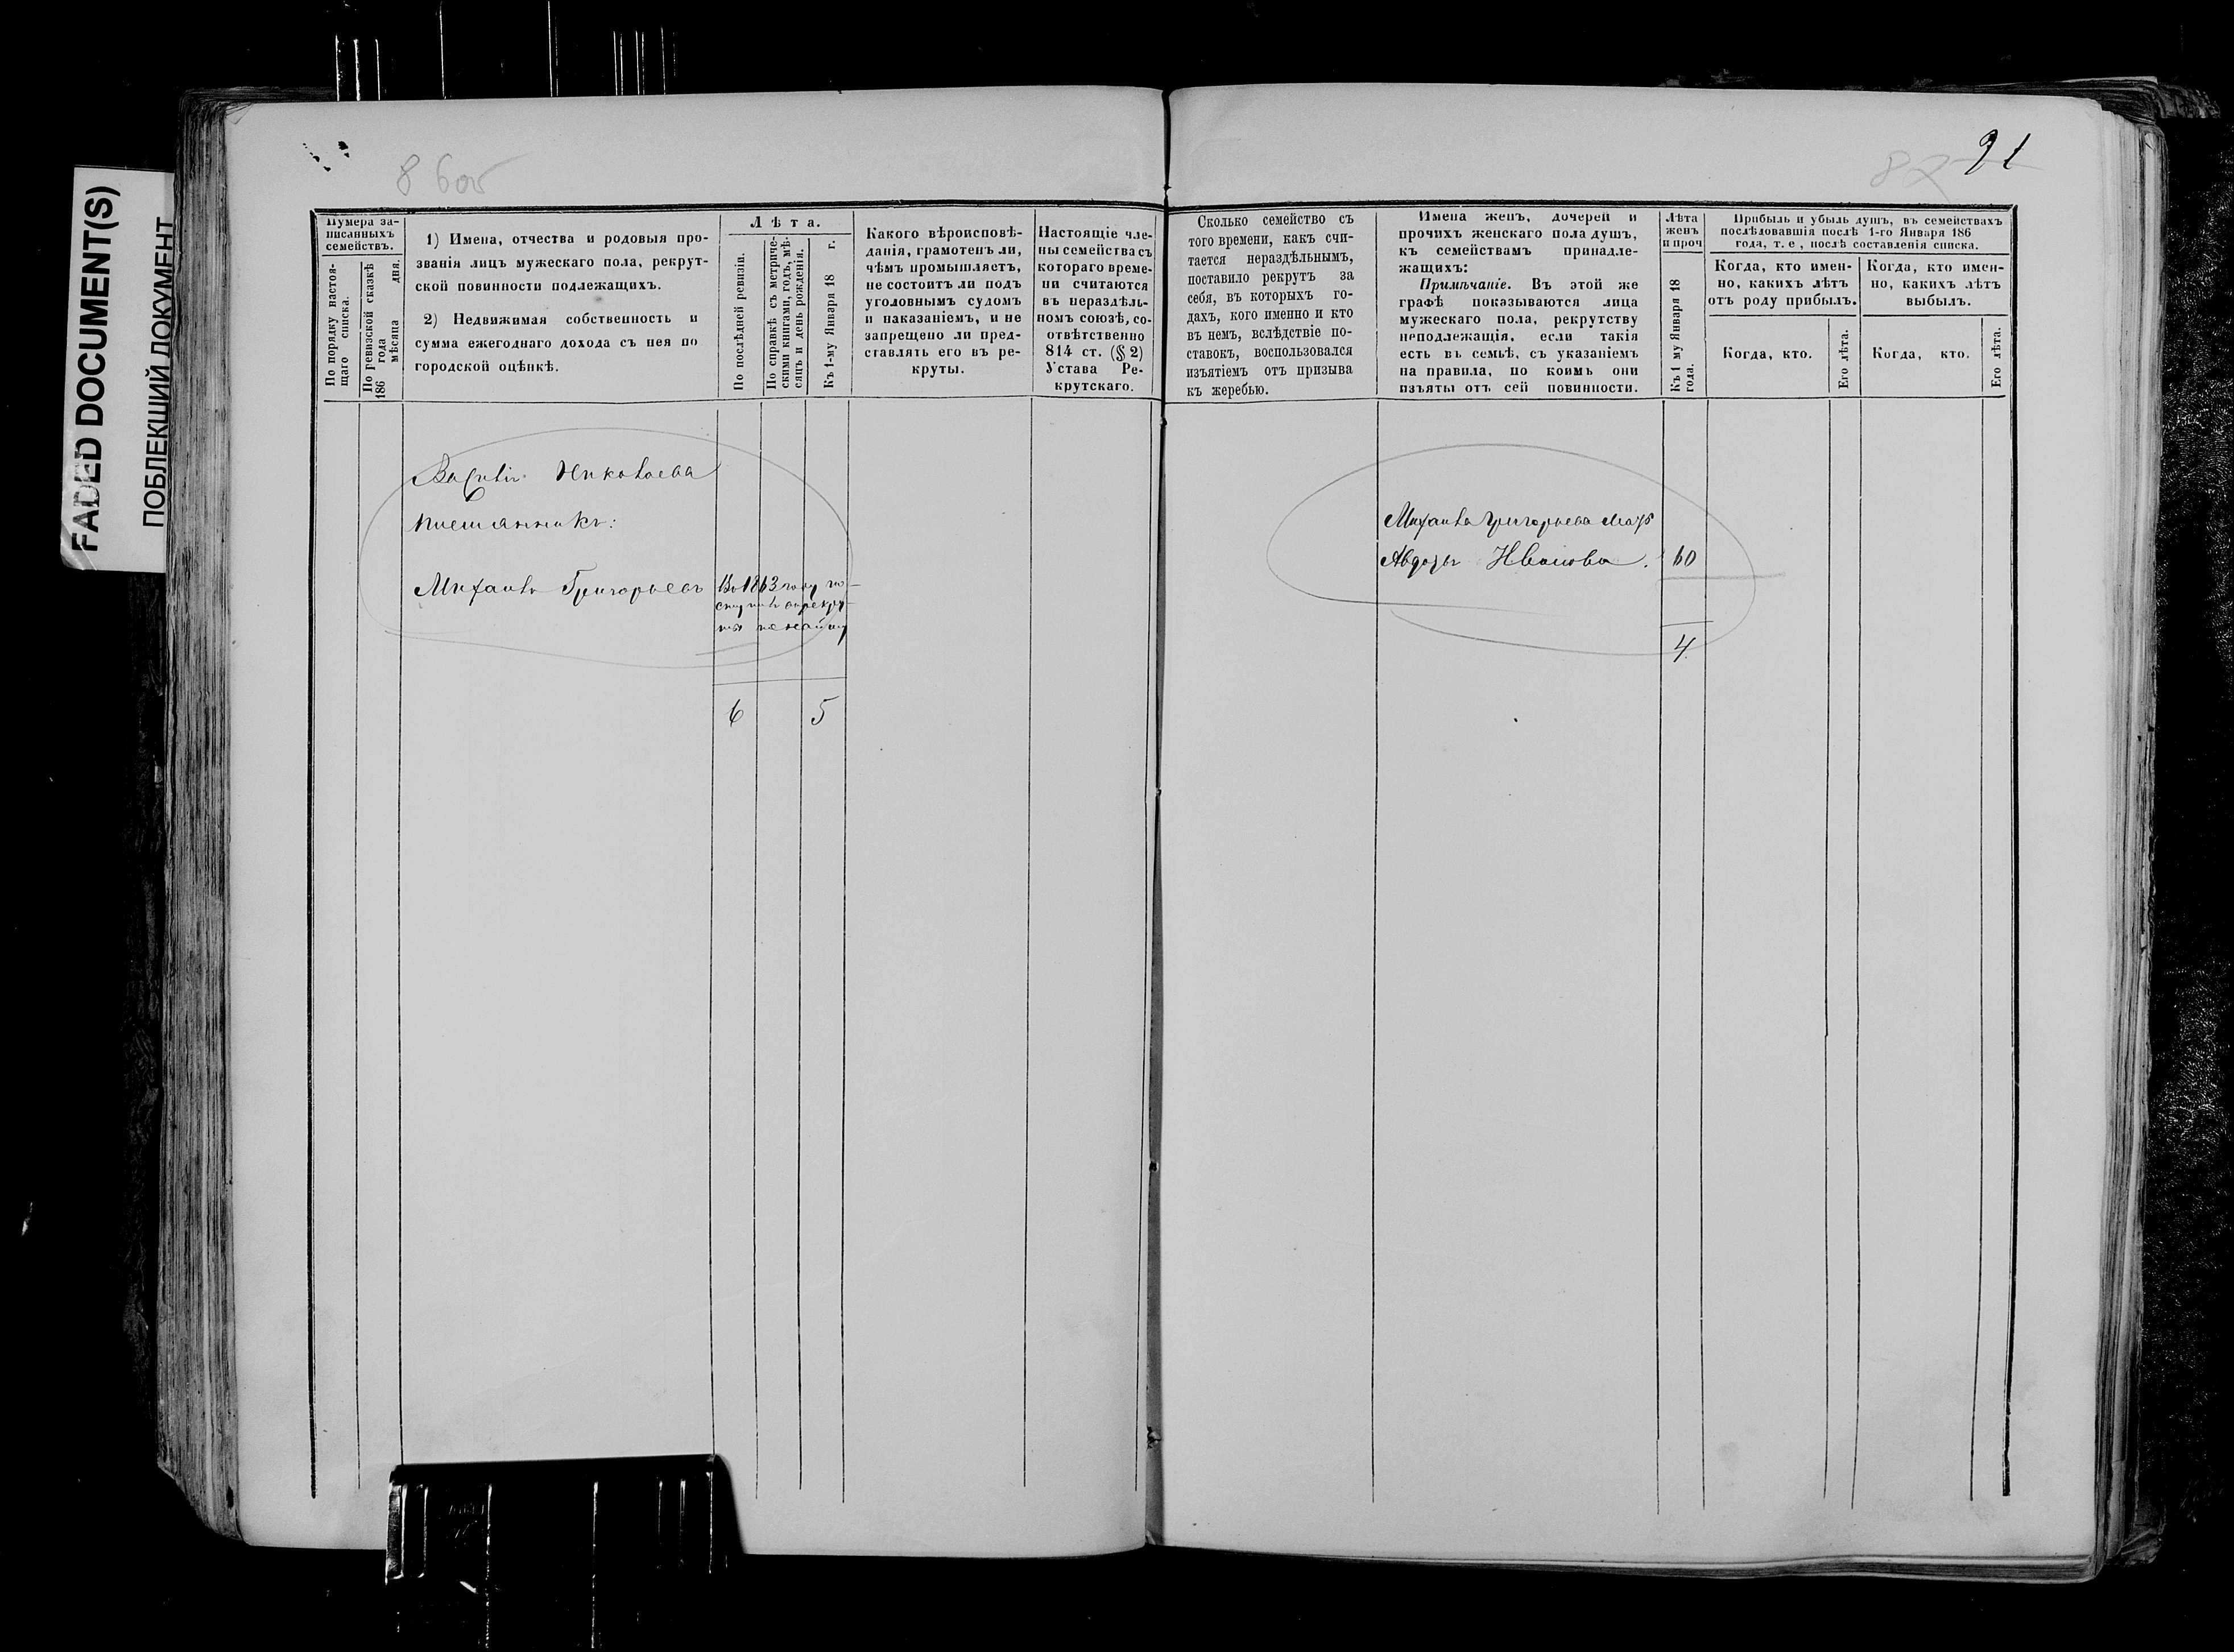 FADED DOCUMENT(S)
ПОБЛЕКШИЙ ДОКУМЕНТ
8 боъ
82
91
Нумера за-
писанныхъ
семействъ.
По порядку настоя-
щаго списка.
По ревизской сказкѣ
186 года
мѣсяца дня.
1) Имена, отчества и родовыя про-
званія лицъ мужескаго пола, рекрут-
ской повинности подлежащихъ.
2) Недвижимая собственность и
сумма ежегоднаго дохода съ нея по
городской оцѣнкѣ.
Лѣта.
По послѣдней ревизіи.
По справкѣ съ метриче-
скими книгами, годъ, мѣ-
сяцъ и день рожденія.
Къ 1-му Января 18 г.
Какого вѣроисповѣ-
данія, грамотенъ ли,
чѣмъ промышляетъ,
не состоитъ ли подъ
уголовнымъ судомъ
и наказаніемъ, и не
запрещено ли пред-
ставлять его въ ре-
круты.
Настоящіе чле-
ны семейства съ
котораго време-
ни считаются
въ нераздѣль-
номъ союзѣ, со-
отвѣтственно
814 ст. (§ 2)
Устава Ре-
крутскаго.
Сколько семейство съ
того времени, какъ счи-
тается нераздѣльнымъ,
поставило рекрутъ за
себя, въ которыхъ го-
дахъ, кого именно и кто
въ немъ, вслѣдствіе по-
ставокъ, воспользовался
изъятіемъ отъ призыва
къ жеребью.
Имена женъ, дочерей и
прочихъ женскаго пола душъ,
къ семействамъ принадле-
жащихъ:
Примѣчаніе. Въ этой же
графѣ показываются лица
мужескаго пола, рекрутству
неподлежащія, если такія
есть въ семьѣ, съ указаніемъ
на правила, по коимъ они
изъяты отъ сей повинности.
Лѣта
женъ
и проч
Къ 1 му Января 18
года.
Прибыль и убыль душъ, въ семействахъ
послѣдовавшія послѣ 1-го Января 186
года, т. е, послѣ составленія списка.
Когда, кто имен-
но, какихъ лѣтъ
отъ роду прибылъ.
Когда, кто имен-
но, какихъ лѣтъ
выбылъ.
Когда, кто.
Его лѣта.
Когда, кто.
Его лѣта.
Василія Николаева
племянникъ:
Михаилъ Григорьевъ
Въ 1863 году по-
ступилъ въ рекру-
ты по найму
6
5
Михаила Григорьева мать
Авдотья Иванова.
60
4